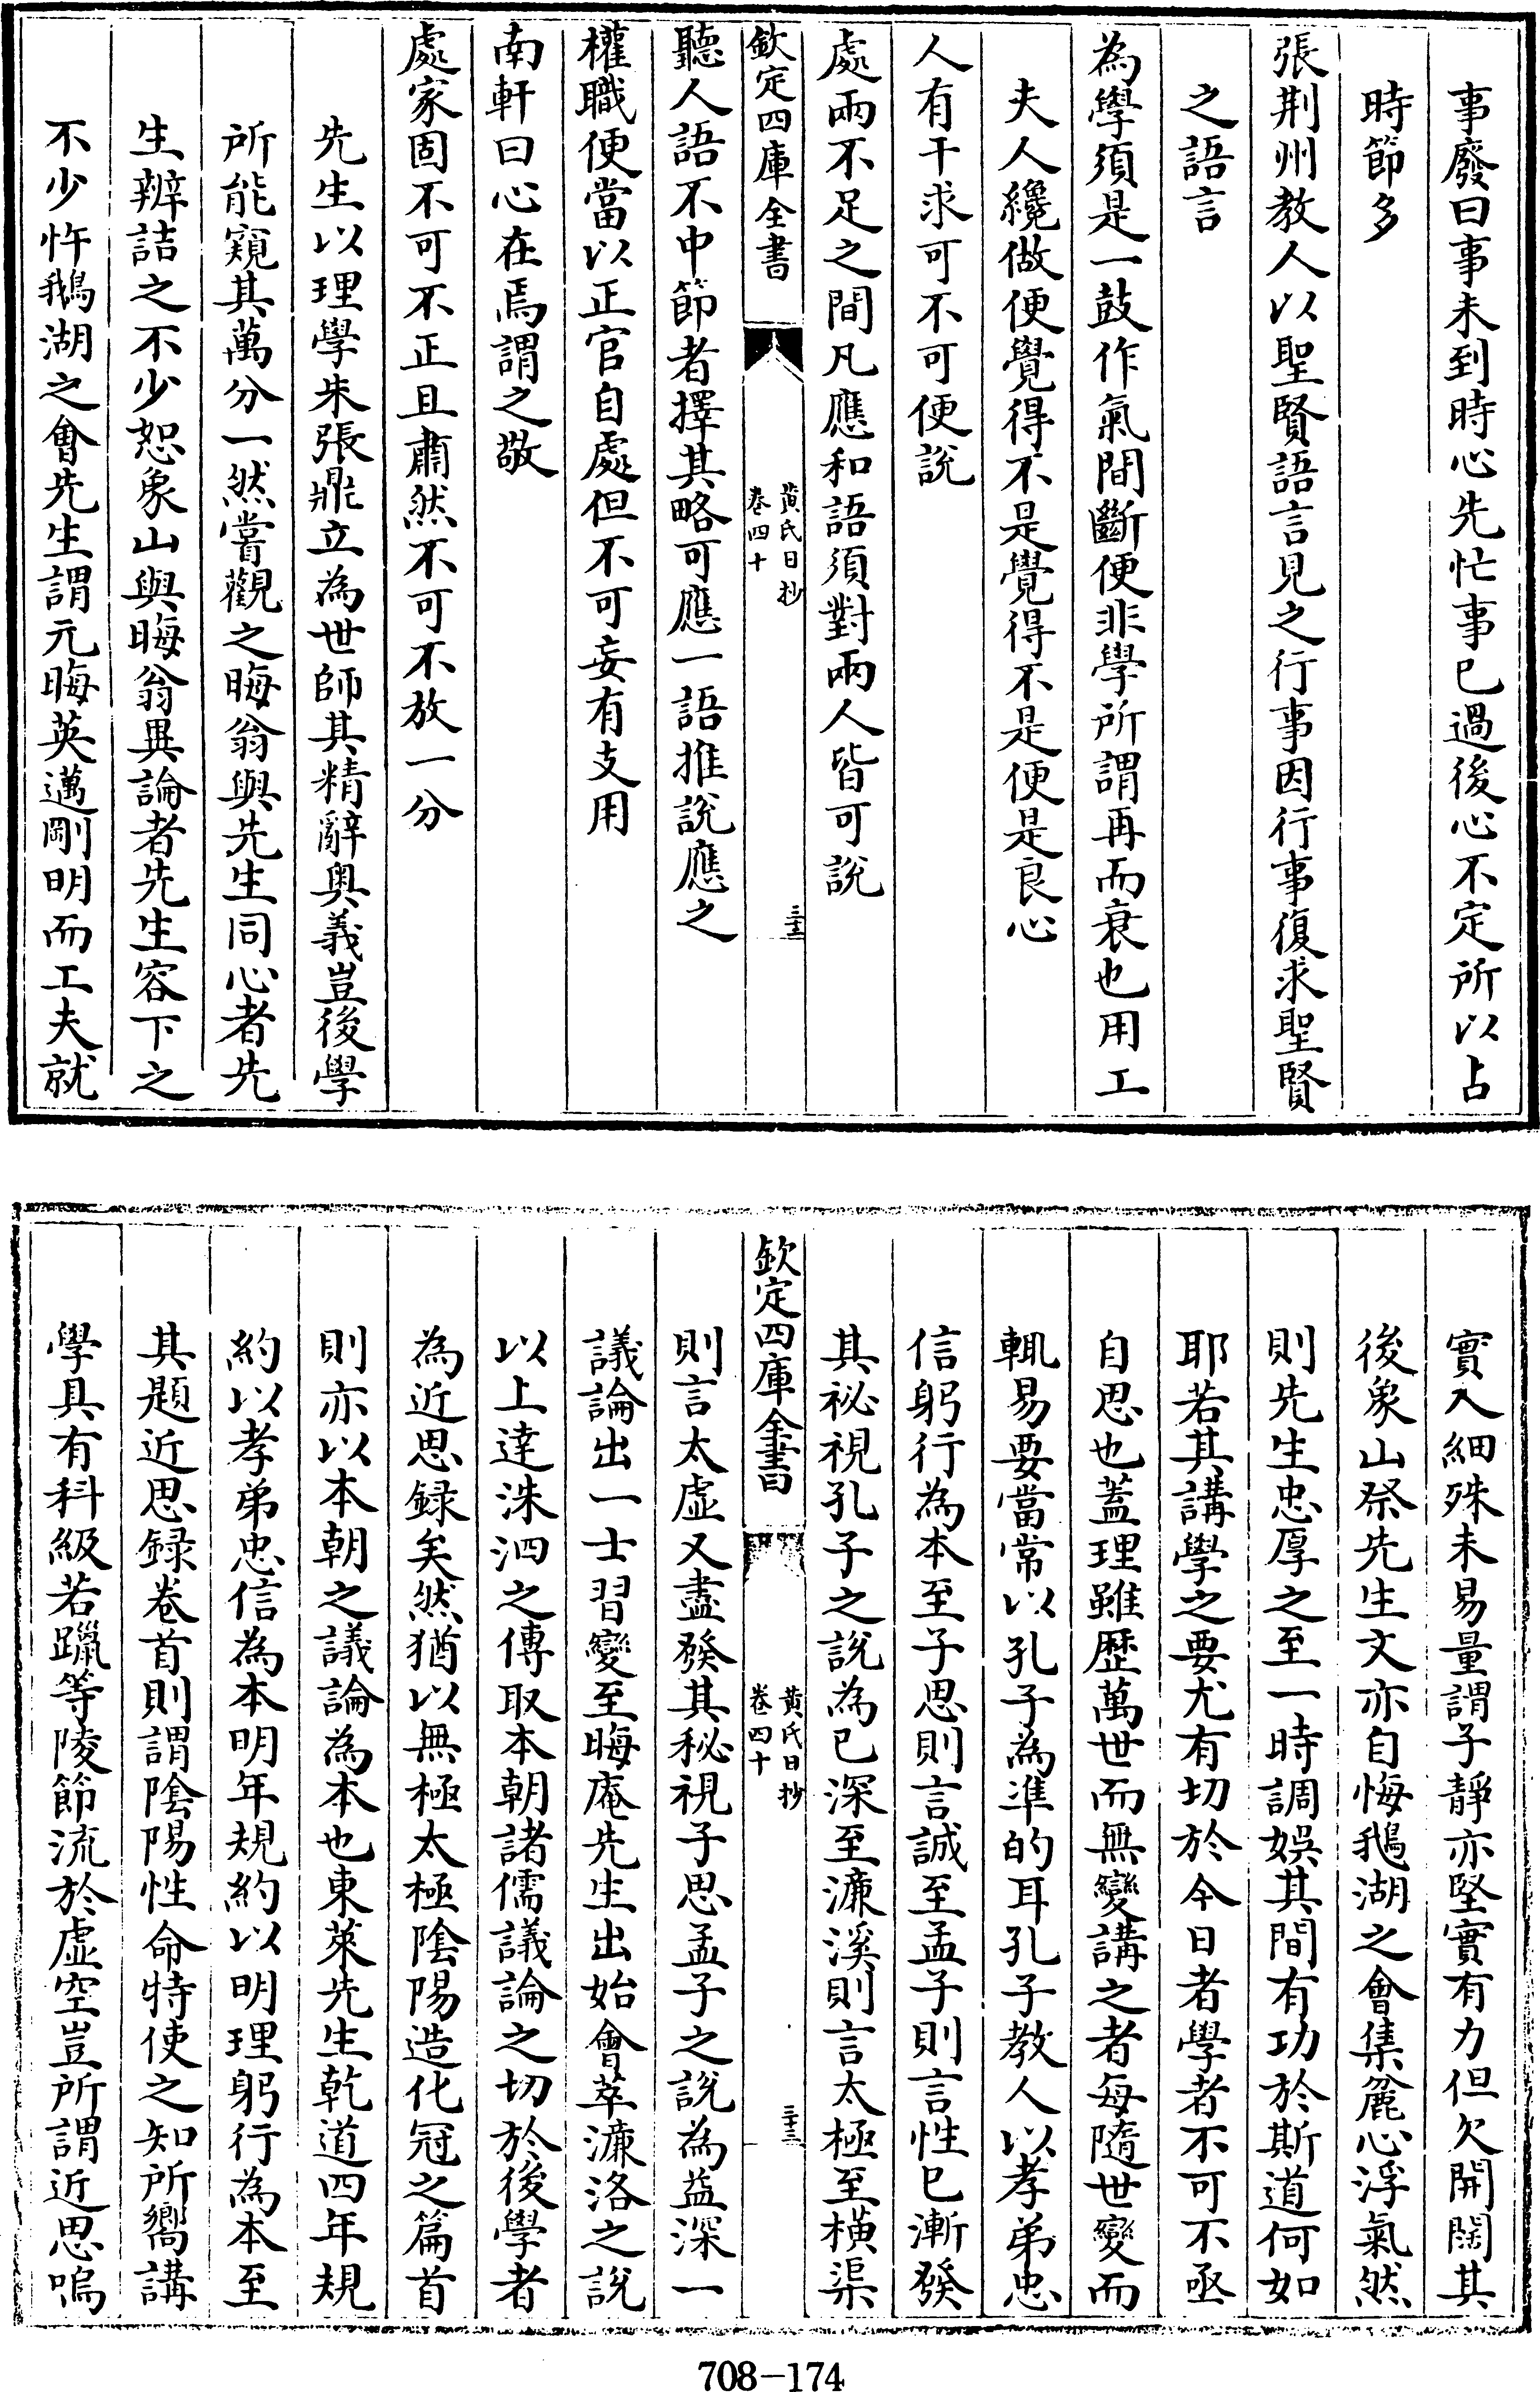 事廢曰事未到時心先忙事已過後心不定所以占
時節多
張荆州教人以聖賢語言見之行事因行事復求聖賢
之語言
為學須是一鼓作氣間斷便非學所謂再而衰也用工
夫人纔做便覺得不是覺得不是便是良心
人有干求可不可便說
處兩不足之間凡應和語須對兩人皆可說
欽定四庫全書
黄氏日抄
卷四十
三十二
聽人語不中節者擇其略可應一語推說應之
權職便當以正官自處但不可妄有支用
南軒曰心在焉謂之敬
處家固不可不正且肅然不可不放一分
先生以理學朱張鼎立為世師其精辭奥義豈後學
所能窺其萬分一然嘗觀之晦翁與先生同心者先
生辨詰之不少恕象山與晦翁異論者先生容下之
不少忤鵝湖之會先生謂元晦英邁剛明而工夫就
實入細殊未易量謂子靜亦堅實有力但欠開闊其
後象山祭先生文亦自悔鵝湖之會集麄心浮氣然
則先生忠厚之至一時調娯其間有功於斯道何如
耶若其講學之要尤有切於今日者學者不可不亟
自思也蓋理雖歴萬世而無變講之者每隨世變而
輒易要當常以孔子為凖的耳孔子教人以孝弟忠
信躬行為本至子思則言誠至孟子則言性已漸發
其祕視孔子之說為已深至濂溪則言太極至横渠
欽定四庫全書
黄氏日抄
卷四十
三十三
則言太虚又盡發其秘視子思孟子之說為益深一
議論出一士習變至晦庵先生出始會萃濂洛之說
以上達洙泗之傳取本朝諸儒議論之切於後學者
為近思録矣然猶以無極太極陰陽造化冠之篇首
則亦以本朝之議論為本也東萊先生乾道四年規
約以孝弟忠信為本明年規約以明理躬行為本至
其題近思録卷首則謂陰陽性命特使之知所嚮講
學具有科級若躐等陵節流於虚空豈所謂近思嗚
708-174